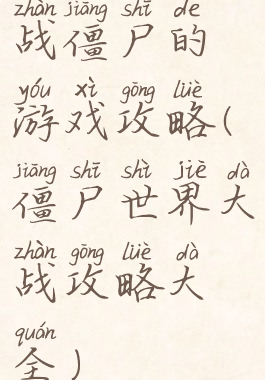 zhàn jiāng shī de
战僵尸的
yóu xì gōng lüè
游戏攻略(
jiāng shī shì jiè dà
僵尸世界大
zhàn gōng lüè dà
战攻略大
quán
全)